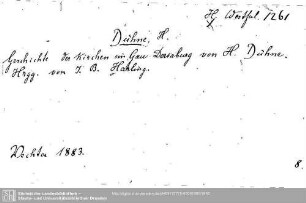 Hg Westfal. 1261
Dühne, H.
Geschichte der Kirchen im Gau Dersaburg von H. Dühne.
Hrgg. von J. B. Hahling.
Vechta 1883.
8.
Sächsische Landesbibliothek -
Staats- und Universitätsbibliothek Dresden